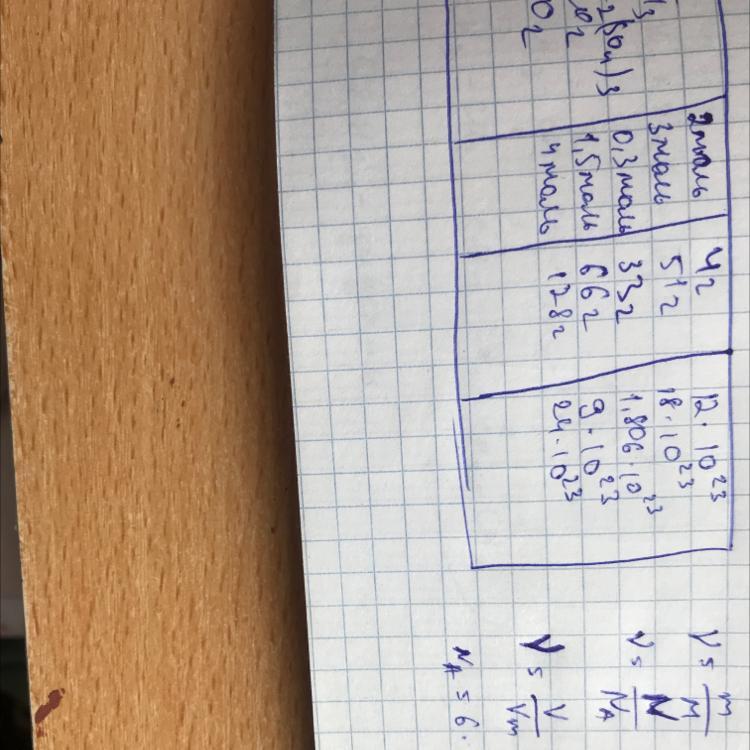 2 моль 4г 12·10²³
3 3 моль 51г 18·10²³
2(SO₄)₃ 0,3 моль 33г 1,806·10²³
O₂ 1,5 моль 66г 9·10²³
O₂ 4 моль 128г 24·10²³
ν = m/M
ν = N/N_A
ν = V/V_m
N_A = 6·